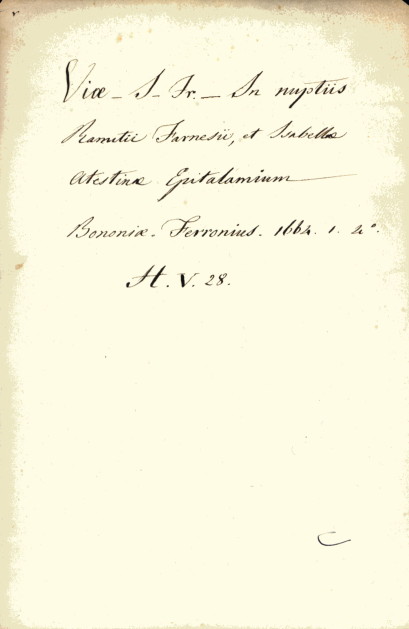 Viæ - J. Fr. - In nuptiis
Ranutii Farnesii, et Isabellæ
Atestinæ Epitalamium
Bononiæ. Ferronius. 1664. 1. 4º.
H. V. 28.
C